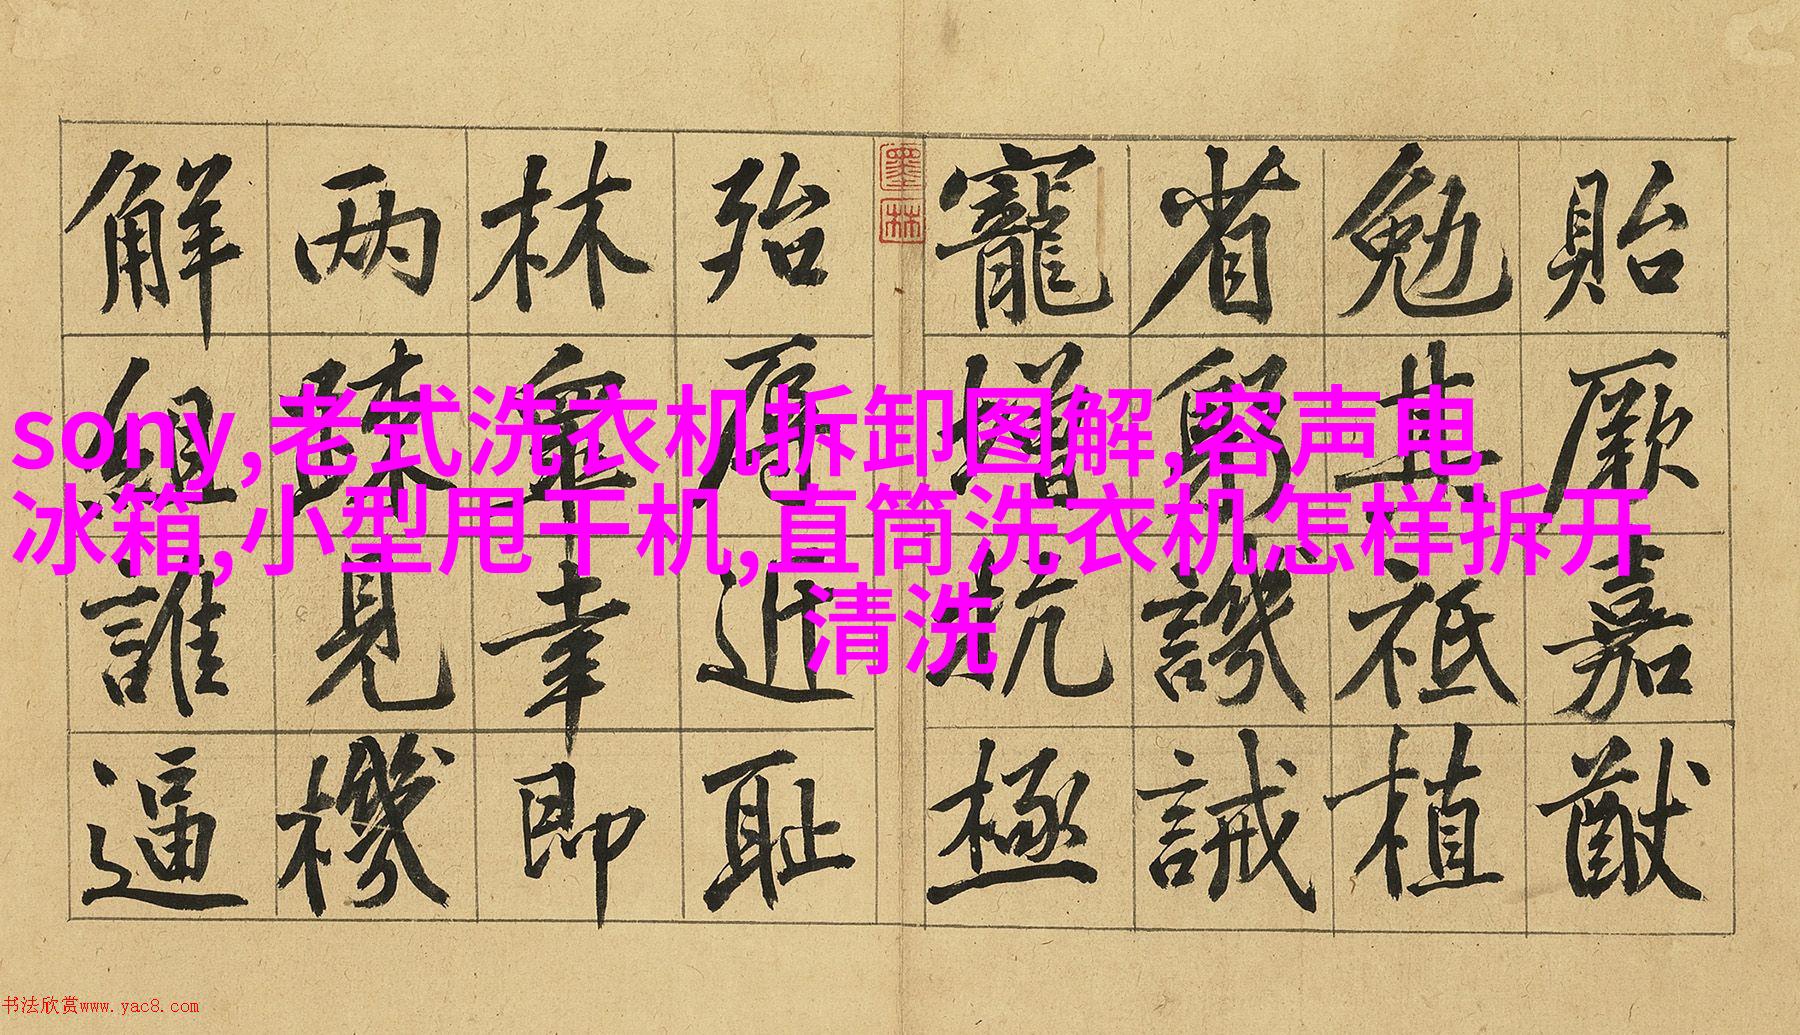 貽厥嘉猷
勉其祗植
省躬譏誡
寵增抗極
殆辱近耻
林皐幸即
两踈見機
解組誰逼
墨林
sony,老式洗衣机拆卸图解,容声电
冰箱,小型甩干机,直筒洗衣机怎样拆开
清洗
书法欣赏www.yac8.com